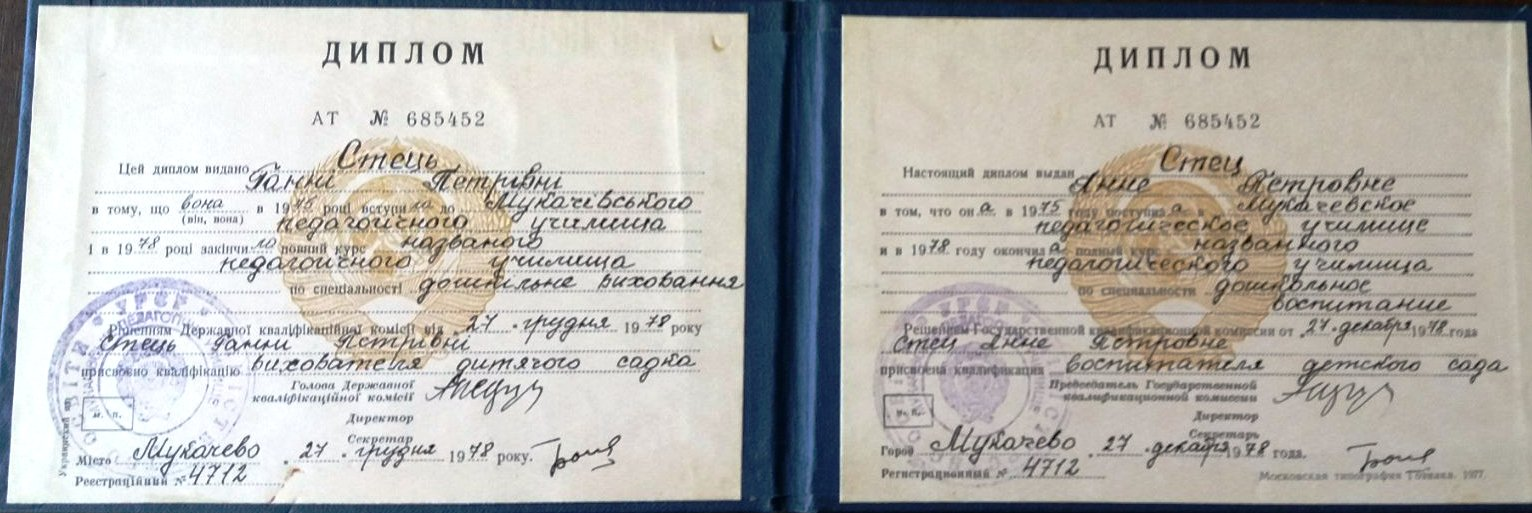 ДИПЛОМ
АТ № 685452
Цей диплом видано Стець
Ганні Петрівні
в тому, що вона в 1975 році вступила до Мукачівського
(він, вона)
педагогічного училища
і в 1978 році закінчила повний курс названого
педагогічного училища
по спеціальності дошкільне виховання
Рішенням Державної кваліфікаційної комісії від 27 грудня 1978 року
Стець Ганни Петрівні
присвоєно кваліфікацію вихователя дитячого садка
Голова Державної
кваліфікаційної комісії
Директор
Секретар
М. П.
Місто Мукачево 27 грудня 1978 року.
Реєстраційний № 4712
ДИПЛОМ
АТ № 685452
Настоящий диплом выдан Стец
Анне Петровне
в том, что она в 1975 году поступила в Мукачевское
педагогическое училище
и в 1978 году окончила полный курс названного
педагогического училища
по специальности дошкольное
воспитание
Решением Государственной квалификационной комиссии от 27 декабря 1978 года
Стец Анне Петровне
присвоена квалификация воспитателя детского сада
Председатель Государственной
квалификационной комиссии
Директор
Секретарь
М. П.
Город Мукачево 27 декабря 1978 года.
Регистрационный № 4712
Московская типография Гознака. 1977.